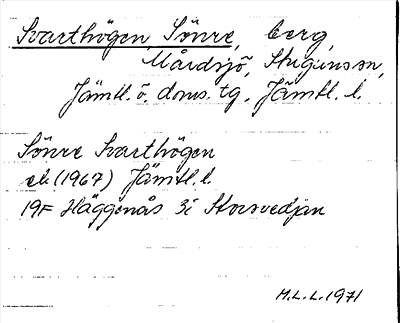 Svarthögen, Sönre, berg,
Mårdsjö, Stugunssn,
Jämtl. ö. doms. tg, Jämtl. l.
Sönre Svarthögen
ek (1967) Jämtl. l.
19F Häggenås 3i Storsvedjan
M.L.L. 1971